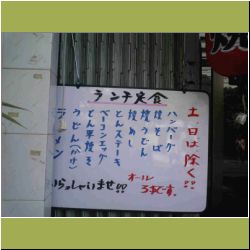 ランチ定食
土日は除く!!
ハンバーグ
焼そば
焼うどん
焼めし
とんステーキ
ベーコンエッグ
とん平焼き
うどん(かけ)
ラーメン
オール
いらっしゃいませ!!